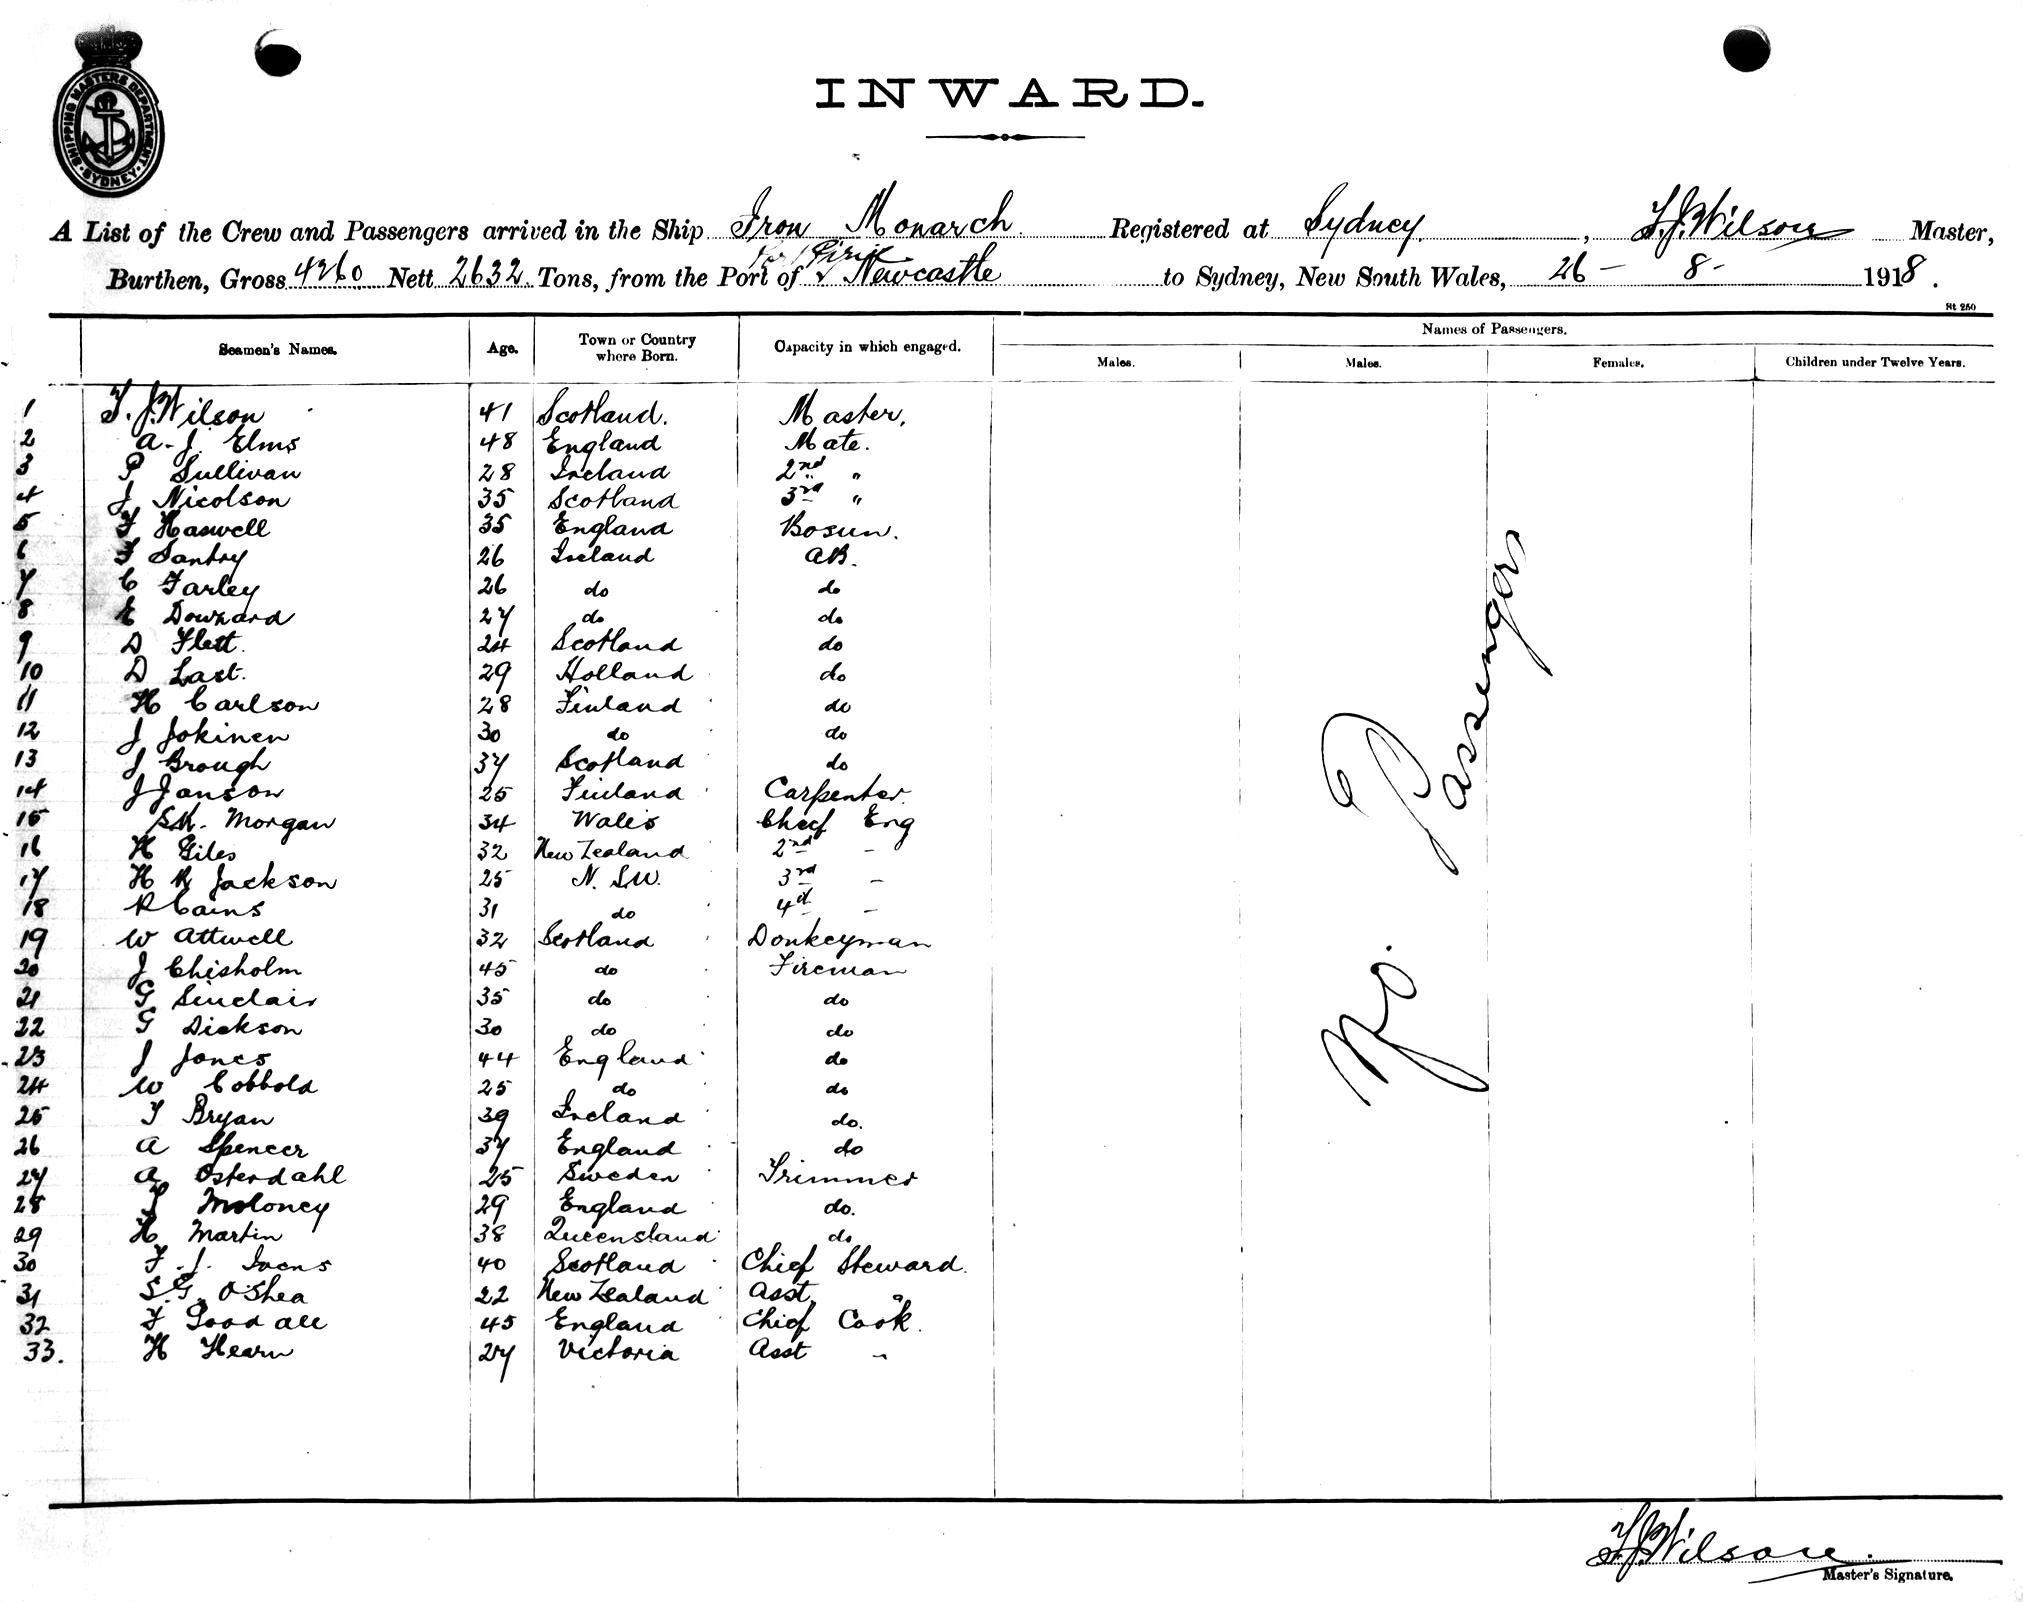 SHIPPING MASTERS DEPARTMENT
SYDNEY
INWARD.
A List of the Crew and Passengers arrived in the Ship Iron Monarch Registered at Sydney, T. J. Wilson Master,
Port Pirie
Burthen, Gross 4260 Nett 2632 Tons, from the Port of & Newcastle to Sydney, New South Wales, 26 - 8 - 1918.
St 250
Seamen's Names. Age. Town or Country where Born. Capacity in which engaged. Names of Passengers.
Males. Males. Females. Children under Twelve Years.
1 T. J. Wilson 41 Scotland. Master,
2 A. J. Elms 48 England Mate.
3 P Sullivan 28 Ireland 2nd "
4 J Nicolson 35 Scotland 3rd "
5 F Haswell 35 England Bosun.
6 F Santry 26 Ireland AB.
7 C Farley 26 do do
8 E Downard 27 do do
9 D Flett. 24 Scotland do
10 D Last. 29 Holland do
11 H Carlson 28 Finland do
12 J Jokinen 30 do do
13 J Brough 37 Scotland do
14 J Janson 25 Finland Carpenter.
15 Morgan 34 Wales Chief Eng
16 H Giles 32 New Zealand 2nd -
17 H R Jackson 25 N. S.W. 3rd -
18 R Cains 31 do 4th -
19 W Attwell 32 Scotland Donkeyman
20 J Chisholm 45 do Fireman
21 G Sinclair 35 do do
22 G Dickson 30 do do
23 J Jones 44 England do
24 W Cobbold 25 do do
25 T Bryan 39 Ireland do.
26 A Spencer 37 England do
27 A Osterdahl 25 Sweden Trimmer
28 J Moloney 29 England do.
29 H Martin 38 Queensland do
30 F. J. Ivens 40 Scotland Chief Steward.
31 S. G. O'Shea 22 New Zealand Asst. "
32 F Goodall 45 England Chief Cook.
33. H Hearn 27 Victoria Asst "
No. Passengers
T. J. Wilson.
Master's Signature.